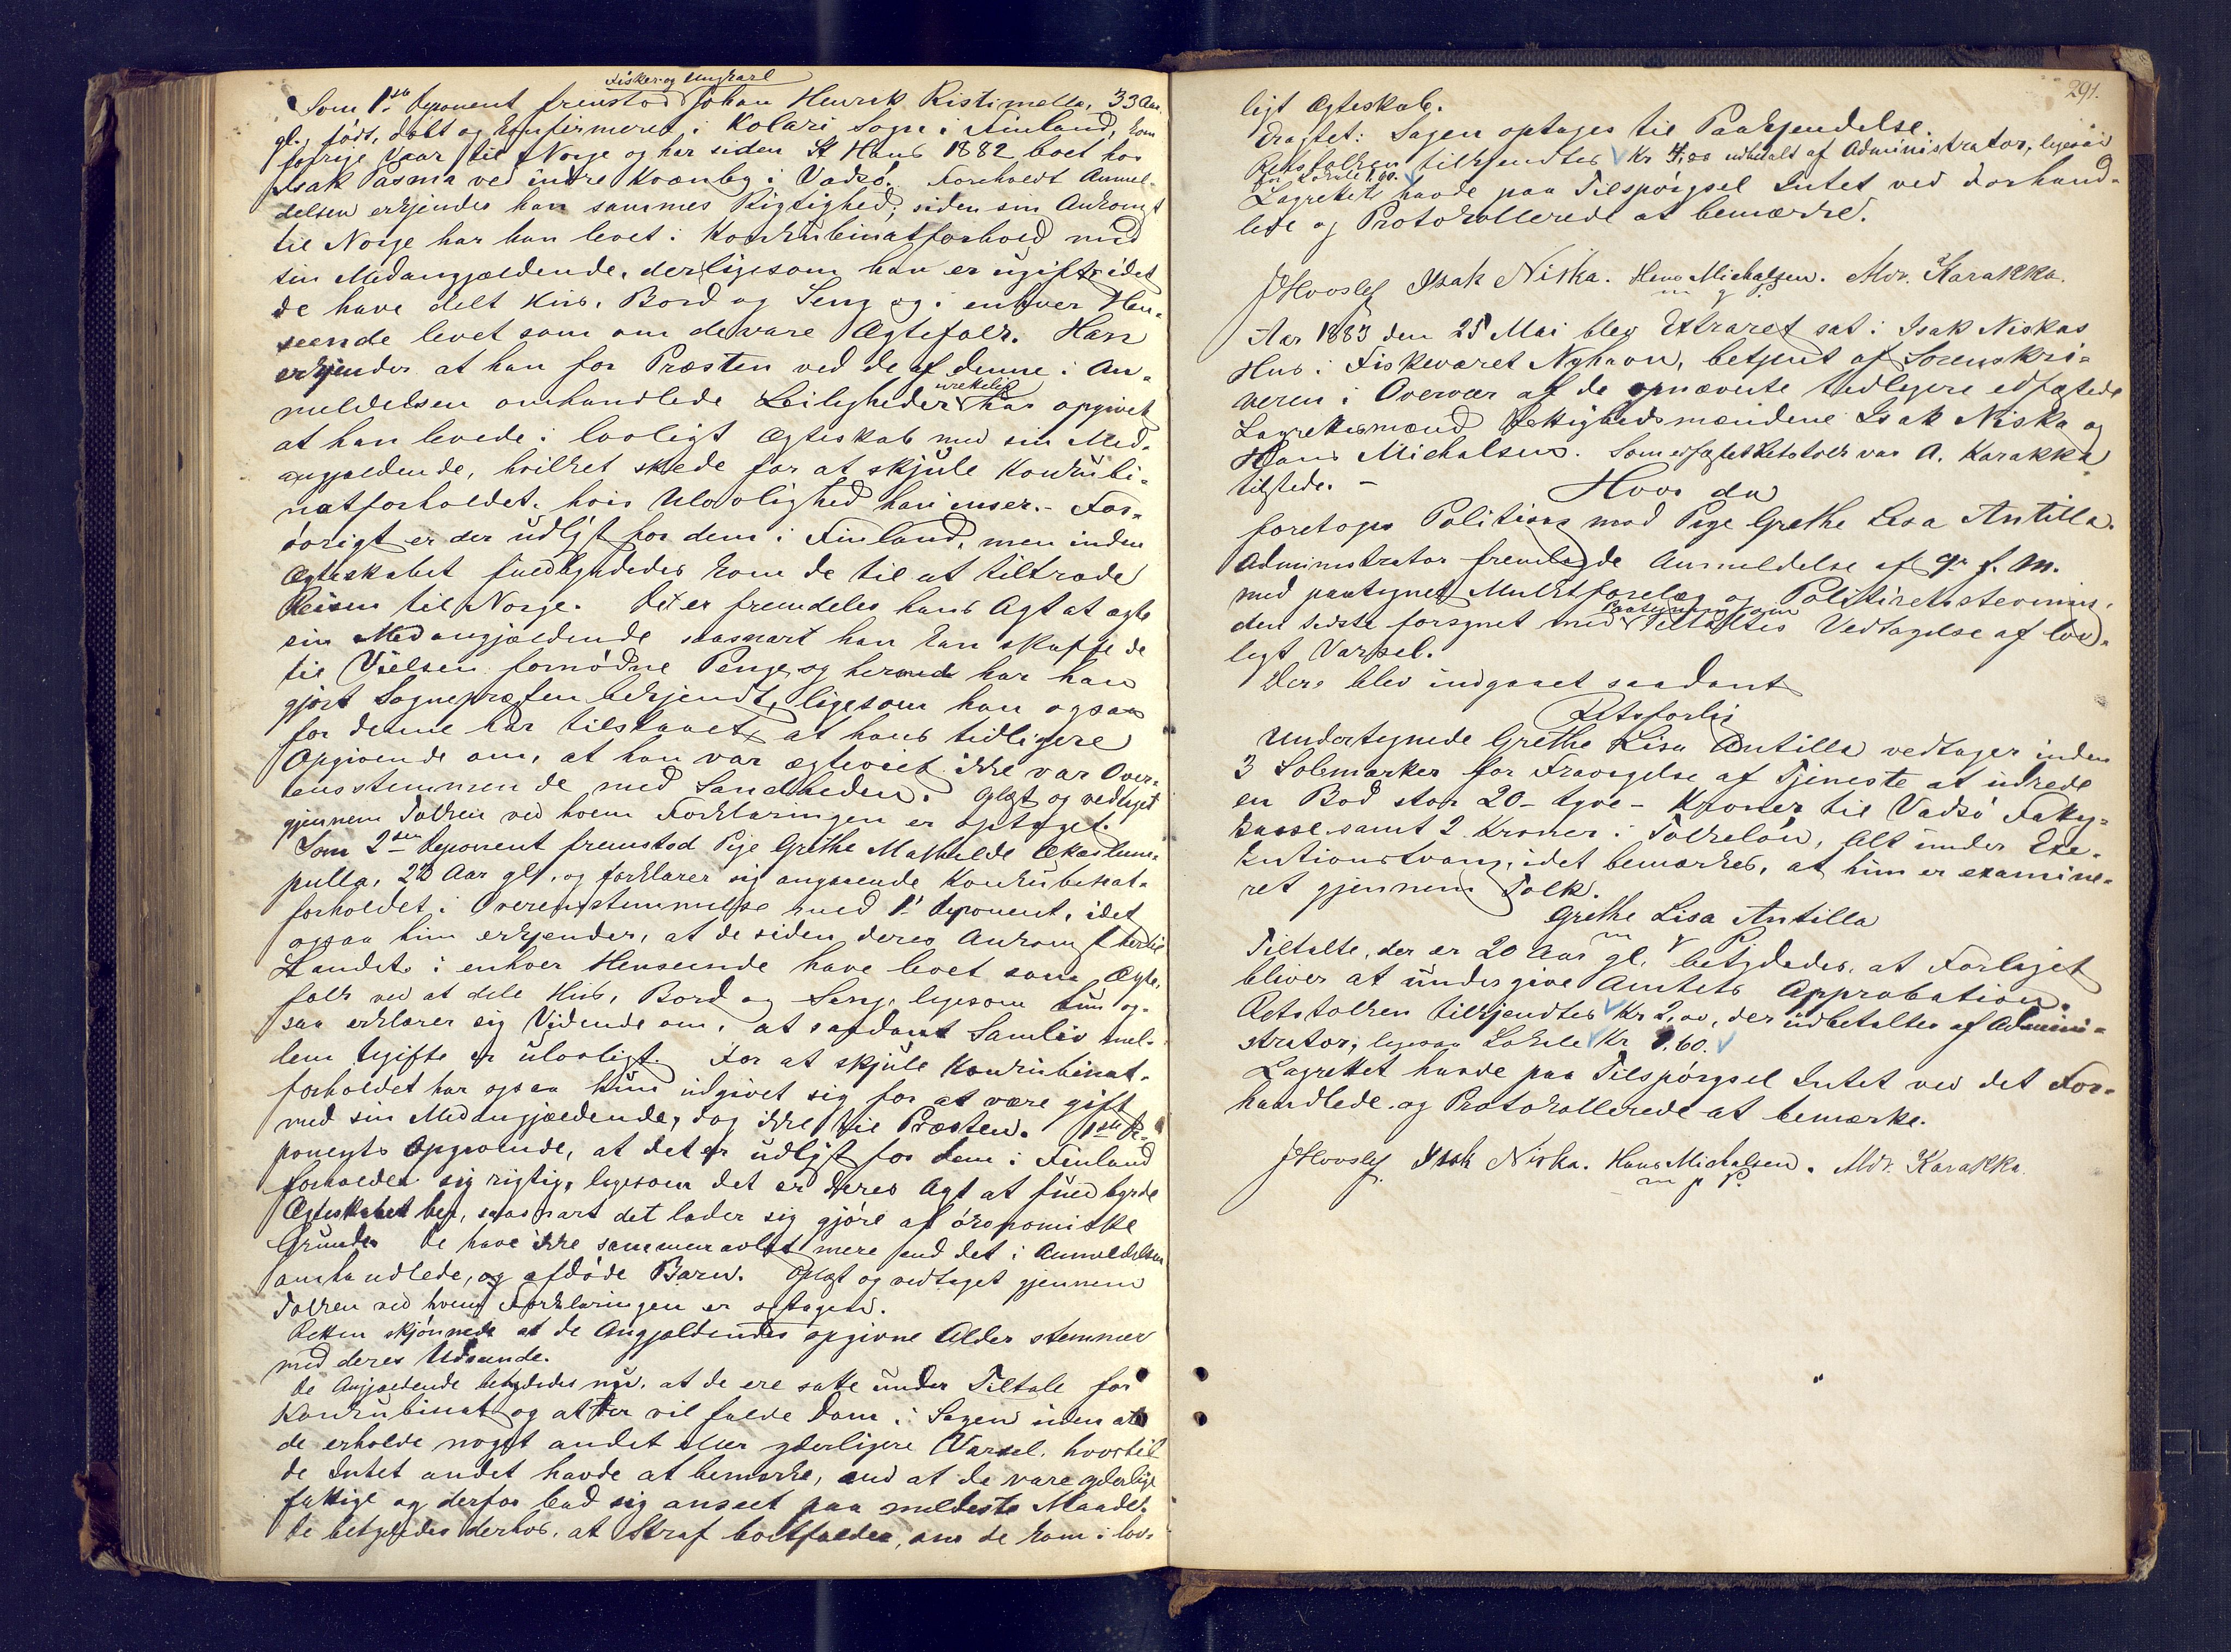 Fisker og Ungkarl
Som 1ste Deponent fremstod Johan Henrik Ristimella, 33 Aar
gl., født, døbt og konfirmeret i Kolari Sogn i Finland, kom
forrige Vaar til Norge og har siden St Hans 1882 boet hos
Isak Pasma ved indre Kvænby i Vadsø. Foreholdt Anmel-
delsen erkjender han sammes Rigtighed; siden sin Ankomst
til Norge har han levet i Konkubinatforhold med
sin Medangjældende, der ligesom han er ugift, idet
de have delt Hus, Bord og Seng og i enhver Hen-
seende levet som om de vare Ægtefolk. Han
erkjender at han for Præsten ved de af denne i An-
meldelsen omhandlede Leiligheder virkelig har opgivet
at han levede i lovligt Ægteskab med sin Med-
angjældende, hvilket skede for at skjule Konkubi-
natforholdet, hvis Ulovlighed han indser. - For-
øvrigt er der udlyst for dem i Finland, men inden
Ægteskabet fuldbyrdedes kom de til at tiltræde
Reisen til Norge. Det er fremdeles hans Agt at ægte
sin Medangjældende saasnart han kan skaffe de
til Vielsen fornødne Penge, og hermed har han
gjort Sognepræsten bekjendt, ligesom han ogsaa
for denne har tilstaaet, at hans tidligere
Opgivende om, at han var ægteviet ikke var Over-
ensstemmende med Sandheden. Oplæst og vedtaget
gjennem Tolken ved hvem Forklaringen er optaget.
Som 2den Deponent fremstod Pige Grethe Mathilde Akaslum-
pulla, 23 Aar gl., og forklarer sig angaaende Konkubinat-
forholdet i Overensstemmelse med 1ste Deponent, idet
ogsaa hun erkjender, at de siden deres Ankomst hertil
Landet i enhver Henseende have levet som Ægte-
folk ved at dele Hus, Bord og Seng, ligesom hun og-
saa erklærer sig Vidende om, at saadant Samliv mel-
lem Ugifte er ulovligt. For at skjule Konkubinat-
forholdet har ogsaa hun udgivet sig for at være gift
med sin Medangjældende, dog ikke til Præsten. 1ste De-
ponents Opgivende, at det er udlyst for dem i Finland
forholder sig rigtig, ligesom det er deres Agt at fuldbyrde
Ægteskabet her, saasnart det lader sig gjøre af økonomiske
Grunde. De have ikke sammenavlet mere end det i Anmeldelsen
omhandlede, og afdøde Barn. Oplæst og vedtaget gjennem
Tolken ved hvem Forklaringen er optaget.
Retten skjønnede at de Angjældendes opgivne Alder stemmer
med deres Udseende.
De Angjældende betydedes nu, at de ere satte under Tiltale for
Konkubinat og at der vil falde Dom i Sagen uden at
de erholde noget andet eller yderligere Varsel, hvortil
de Intet andet havde at bemærke, end at de vare yderlige
fattige og derfor bad sig anseet paa mildeste Maade.
De betydedes derhos, at Straf bortfalder, om de kom i lov-
291.
ligt Ægteskab.
Dragtet: Sagen optages til Paakjendelse.
Retstolken tilkjendtes Kr 4,00 udbetalt af Administrator, ligesaa
for Lokale 1.60.
Lagrettet havde paa Tilspørgsel Intet ved Forhand-
lede og Protokollerede at bemærke.
JHovslef Isak Niska. Hans Michalsen. Mdv. Karakka.
m p P.
Aar 1883 den 25 Mai blev Extraret sat i Isak Niskas
Hus i Fiskeværet Nyhavn, betjent af Sorenskri-
veren i Overvær af de opnævnte tidligere edfæstede
Lagrettesmænd Rettighedsmændene Isak Niska og
Hans Michalsen. Som edfæstet Retstolk var A. Karakka
tilstede. -
Hvor da
foretoges Politisag mod Pige Grethe Lisa Antilla.
Administrator fremlagde Anmeldelse af 9de f. M.
med paategnet Mulktforelæg og Politiretsstevning,
den sidste forsynet med Paategning om Tiltaltes Vedtagelse af lov-
ligt Varsel.
Der blev indgaaet saadant
Retsforlig
Undertegnede Grethe Lisa Antilla vedtager inden
3 Solemærker for Fravigelse af Tjeneste at udrede
en Bod stor 20 - tyve - Kroner til Vadsø Fattig-
kasse samt 2 Kroner i Tolkeløn, Alt under Exe-
kutionstvang, idet bemærkes, at hun er examine-
ret gjennem Tolk.
Grethe Lisa Antilla
m p P
Tiltalte, der er 20 Aar gl., betydedes, at Forliget
bliver at undergive Amtets Approbation.
Retstolken tilkjendtes Kr 2,00, der udbetaltes af Admini-
strator; ligesaa Lokale Kr 1.60.
Lagrettet havde paa Tilspørgsel Intet ved det For-
handlede og Protokollerede at bemærke.
JHovslef. Isak Niska. Hans Michalsen. Mdv. Karakka.
m p P.